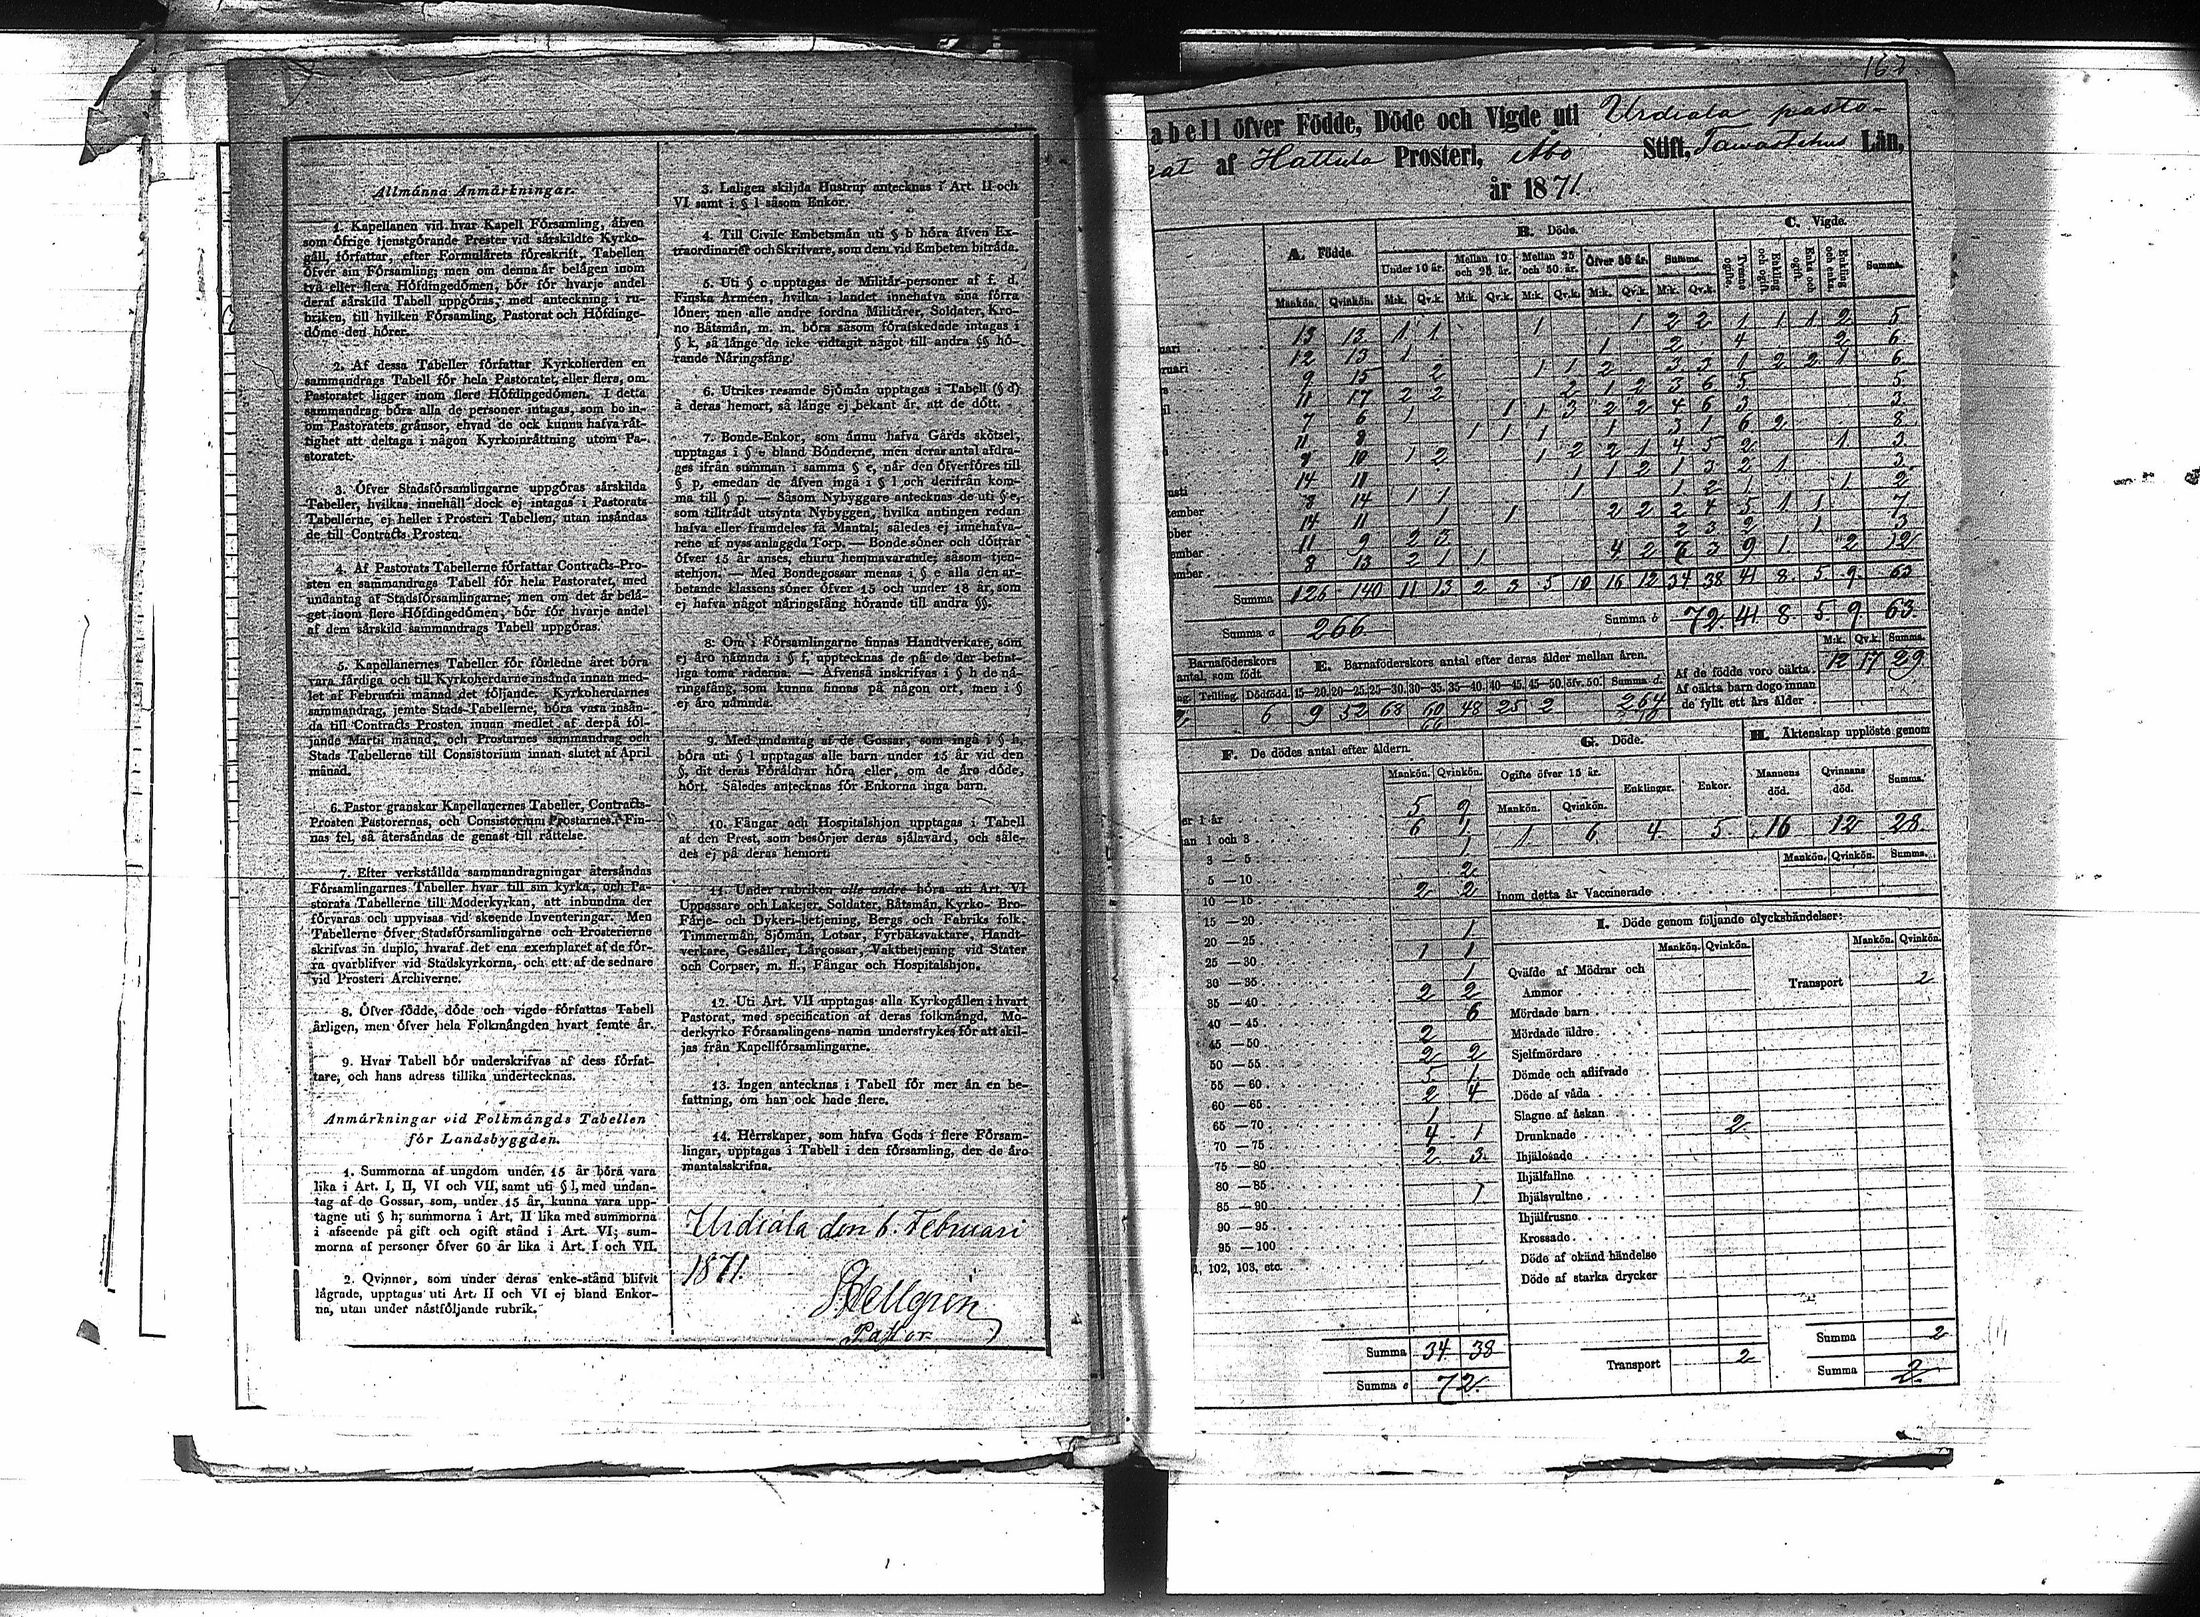 Allmänna Anmärkningar.
1. Kapellanen vid hvar Kapell Församling, äfven
som öfrige tjenstgörande Prester vid särskildte Kyrko-
gäll, författar, efter Formulärets föreskrift, Tabellen
öfver sin Församling; men om denna är belägen inom
två eller flera Höfdingedömen, bör för hvarje andel
deraf särskild Tabell uppgöras, med anteckning i ru-
briken, till hvilken Församling, Pastorat och Höfdinge-
döme den hörer.
2. Af dessa Tabeller författar Kyrkoherden en
sammandrags Tabell för hela Pastoratet, eller flera, om
Pastoratet ligger inom flere Höfdingedömen. I detta
sammandrag böra alla de personer intagas, som bo in-
om Pastoratets gränsor, ehvad de ock kunna hafva rät-
tighet att deltaga i någon Kyrkoinrättning utom Pa-
storatet.
3. Öfver Stadsförsamlingarne uppgöras särskilda
Tabeller, hvilkas innehåll dock ej intagas i Pastorats
Tabellerne, ej heller i Prosteri Tabellen, utan insändas
de till Contracts Prosten.
4. Af Pastorats Tabellerne författar Contracts-Pro-
sten en sammandrags Tabell för hela Pastoratet, med
undantag af Stadsförsamlingarne; men om det är belä-
get inom flere Höfdingedömen, bör för hvarje andel
af dem särskild sammandrags Tabell uppgöras.
5. Kapellanernes Tabeller för förledne året böra
vara färdiga och till Kyrkoherdarne insända innan med-
let af Februarii månad det följande. Kyrkoherdarnes
sammandrag, jemte Stads-Tabellerne, böra vara insän-
da till Contracts Prosten innan medlet af derpå föl-
jande Martii månad, och Prostarnes sammandrag och
Stads Tabellerne till Consistorium innan slutet af April
månad.
6. Pastor granskar Kapellanernes Tabeller, Contracts-
Prosten Pastorernas, och Consistorium Prostarnes. Fin-
nas fel, så återsändas de genast till rättelse.
7. Efter verkställda sammandragningar återsändas
Församlingarnes Tabeller hvar till sin kyrka, och Pa-
storats Tabellerne till Moderkyrkan, att inbundna der
förvaras och uppvisas vid skeende Inventeringar. Men
Tabellerne öfver Stadsförsamlingarne och Prosterierne
skrifvas in duplo, hvaraf det ena exemplaret af de för-
ra qvarblifver vid Stadskyrkorna, och ett af de sednare
vid Prosteri Archiverne.
8. Öfver födde, döde och vigde författas Tabell
årligen, men öfver hela Folkmängden hvart femte år.
9. Hvar Tabell bör underskrifvas af dess förfat-
tare, och hans adress tillika undertecknas.
Anmärkningar vid Folkmängds Tabellen
för Landsbyggden.
1. Summorna af ungdom under 15 år böra vara
lika i Art. I, II, VI och VII, samt uti § l, med undan-
tag af de Gossar, som, under 15 år, kunna vara upp-
tagne uti § h; summorna i Art. II lika med summorna
i afseende på gift och ogift stånd i Art. VI; sum-
morna af personer öfver 60 år lika i Art. I och VII.
2. Qvinnor, som under deras enke-stånd blifvit
lägrade, upptagas uti Art. II och VI ej bland Enkor-
na, utan under nästföljande rubrik.
3. Laligen skiljda Hustrur antecknas i Art. II och
VI samt i § l såsom Enkor.
4. Till Civile Embetsmän uti § b höra äfven Ex-
traordinarier och Skrifvare, som dem vid Embeten biträda.
5. Uti § c upptagas de Militär-personer af f. d.
Finska Arméen, hvilka i landet innehafva sina förra
löner; men alle andre fordna Militärer, Soldater, Kro-
no Båtsmän, m. m. böra såsom förafskedade intagas i
§ k, så länge de icke vidtagit något till andra §§ hö-
rande Näringsfång.
6. Utrikes resande Sjömän upptagas i Tabell (§ d)
å deras hemort, så länge ej bekant är, att de dött.
7. Bonde-Enkor, som ännu hafva Gårds skötsel,
upptagas i § e bland Bönderne, men deras antal afdra-
ges ifrån summan i samma § e, när den öfverföres till
§ p, emedan de äfven ingå i § l och derifrån kom-
ma till § p. — Såsom Nybyggare antecknas de uti § e,
som tillträdt utsynta Nybyggen, hvilka antingen redan
hafva eller framdeles få Mantal; således ej innehafva-
rene af nyss anlaggda Torp. — Bonde söner och döttrar
öfver 15 år anses, ehuru hemmavarande, såsom tjen-
stehjon. — Med Bondegossar menas i § e alla den ar-
betande klassens söner öfver 15 och under 18 år, som
ej hafva något näringsfång hörande till andra §§.
8. Om i Församlingarne finnas Handtverkare, som
ej äro nämnda i § f, upptecknas de på de der befint-
liga toma raderna. — Äfvenså inskrifvas i § h de nä-
ringsfång, som kunna finnas på någon ort, men i §
ej äro nämnda.
9. Med undantag af de Gossar, som ingå i § h,
böra uti § l upptagas alle barn under 15 år vid den
§, dit deras Föräldrar höra eller, om de äro döde,
hört. Således antecknas för Enkorna inga barn.
10. Fångar och Hospitalshjon upptagas i Tabell
af den Prest, som besörjer deras själavård, och såle-
des ej på deras hemort.
11. Under rubriken alle andre böra uti Art. VI
Uppassare och Lakejer, Soldater, Båtsmän, Kyrko- Bro-
Färje- och Dykeri-betjening, Bergs och Fabriks folk,
Timmermän, Sjömän, Lotsar, Fyrbåksvaktare, Handt-
verkare, Gesäller, Lärgossar, Vaktbetjening vid Stater
och Corpser, m. fl., Fångar och Hospitalshjon.
12. Uti Art. VII upptagas alla Kyrkogällen i hvart
Pastorat, med specification af deras folkmängd. Mo-
derkyrko Församlingens namn understrykes för att skil-
jas från Kapellförsamlingarne.
13. Ingen antecknas i Tabell för mer än en be-
fattning, om han ock hade flere.
14. Herrskaper, som hafva Gods i flere Försam-
lingar, upptagas i Tabell i den församling, der de äro
mantalsskrifna.
Urdiala den 6. Februari
1871.
Hellgren
Pastor
167
abell öfver Födde, Döde och Vigde uti Urdiala pasto-
rat af Hattula Prosteri, Åbo Stift, Tavastehus Län,
år 1871.
A. Födde. B. Döde. C. Vigde.
Under 10 år. Mellan 10 och 25 år. Mellan 25 och 50 år. Öfver 50 år. Summa. Tvänne ogifte. Enkling och ogift. Enka och ogift. Enkling och enka Summa.
Mankön. Qvinkön. M:k. Qv.k. M:k. Qv:k. M:k. Qv:k. M:k. Qv:k. M:k. Qv:k.
uari 13 13 1 1 1 1 2 2 1 1 1 2 5
ruari 12 13 1 1 2 4 2 6
9 15 2 1 1 2 3 3 1 2 2 1 6
11 17 2 2 2 1 2 3 6 5 5
7 6 1 1 1 3 2 2 4 6 3 3
11 8 1 1 1 1 3 1 6 2 8
8 10 1 2 1 2 2 1 4 5 2 1 3
usti 14 11 1 1 2 1 3 2 1 3
tember 8 14 1 1 1 1 2 1 1 2
ober 14 11 1 1 2 2 2 4 5 1 1 7
ember 11 9 2 3 2 3 2 1 3
ember 8 13 2 1 1 4 2 7 3 9 1 2 12
Summa 126 140 11 13 2 3 5 10 16 12 34 38 41 8 5 9 63
Summa a 266 Summa b 72 41 8 5 9 63
Barnaföderskors antal, som födt
E. Barnaföderskors antal efter deras ålder mellan åren.
M:k. Qv.k. Summa.
Af de födde voro oäkta 12 17 29
Af oäkta barn dogo innan
de fyllt ett års ålder
Trilling. Dödfödd. 15—20. 20—25. 25—30. 30—35. 35—40. 40—45. 45—50. öfv. 50. Summa d.
2 6 9 52 68 60 48 25 2 264
66
F. De dödes antal efter åldern.
Mankön. Qvinkön.
er 1 år 5 9
an 1 och 3 6 1
3 — 5 1
5 — 10 2
10 — 15 2 2
15 — 20
20 — 25 1
25 — 30 1 1
30 — 35 1
35 — 40 2 2
40 — 45 6
45 — 50 2
50 — 55 2 2
55 — 60 5 1
60 — 65 2 4
65 — 70 1
70 — 75 4 1
75 — 80 2 3
80 — 85
85 — 90 1
90 — 95
95 — 100
1, 102, 103, etc.
Summa 34 38
Summa c 72
G. Döde.
Ogifte öfver 15 år. Enklingar. Enkor.
Mankön. Qvinkön.
1 6 4 5
H. Äktenskap upplöste genom
Mannens död. Qvinnans död. Summa.
16 12 28
Mankön. Qvinkön. Summa.
Inom detta år Vaccinerade
I. Döde genom följande olyckshändelser:
Mankön. Qvinkön. Mankön. Qvinkön.
Qväfde af Mödrar och
Ammor
Mördade barn
Mördade äldre
Sjelfmördare
Dömde och aflifvade
Döde af våda
Slagne af åskan
Drunknade 2
Ihjälosade
Ihjälfallne
Ihjälsvultne
Ihjälfrusne
Krossade
Döde af okänd händelse
Döde af starka drycker
Transport 2
Transport 2
Summa 2
Summa 2